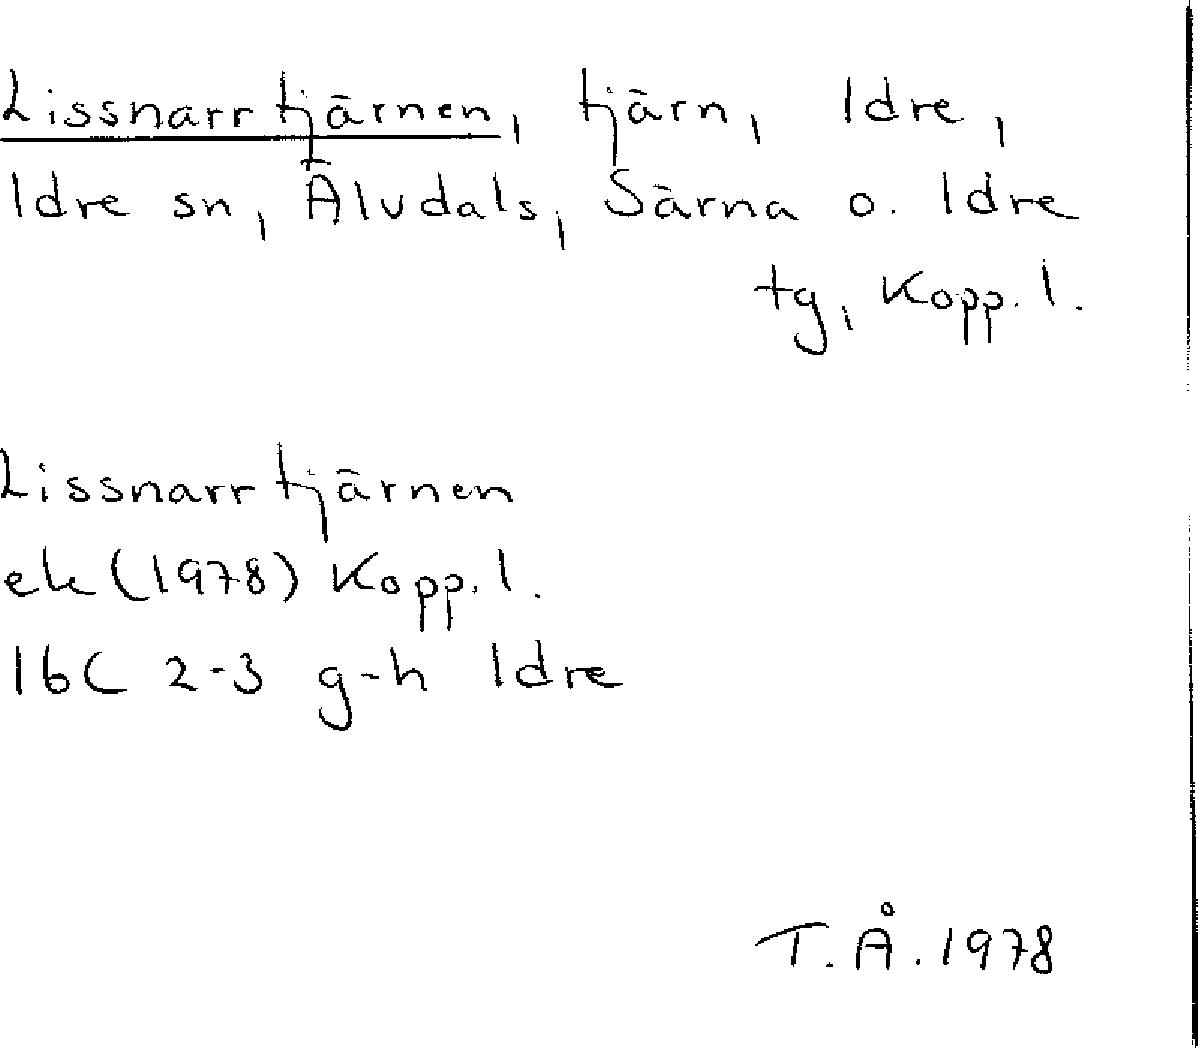 Lissnarrtjärnen, tjärn, Idre,
Idre sn, Älvdals, Särna o. Idre
tg, Kopp. l.
Lissnarrtjärnen
ek (1978) Kopp. l.
16C 2-3 g-h Idre
T. Å. 1978